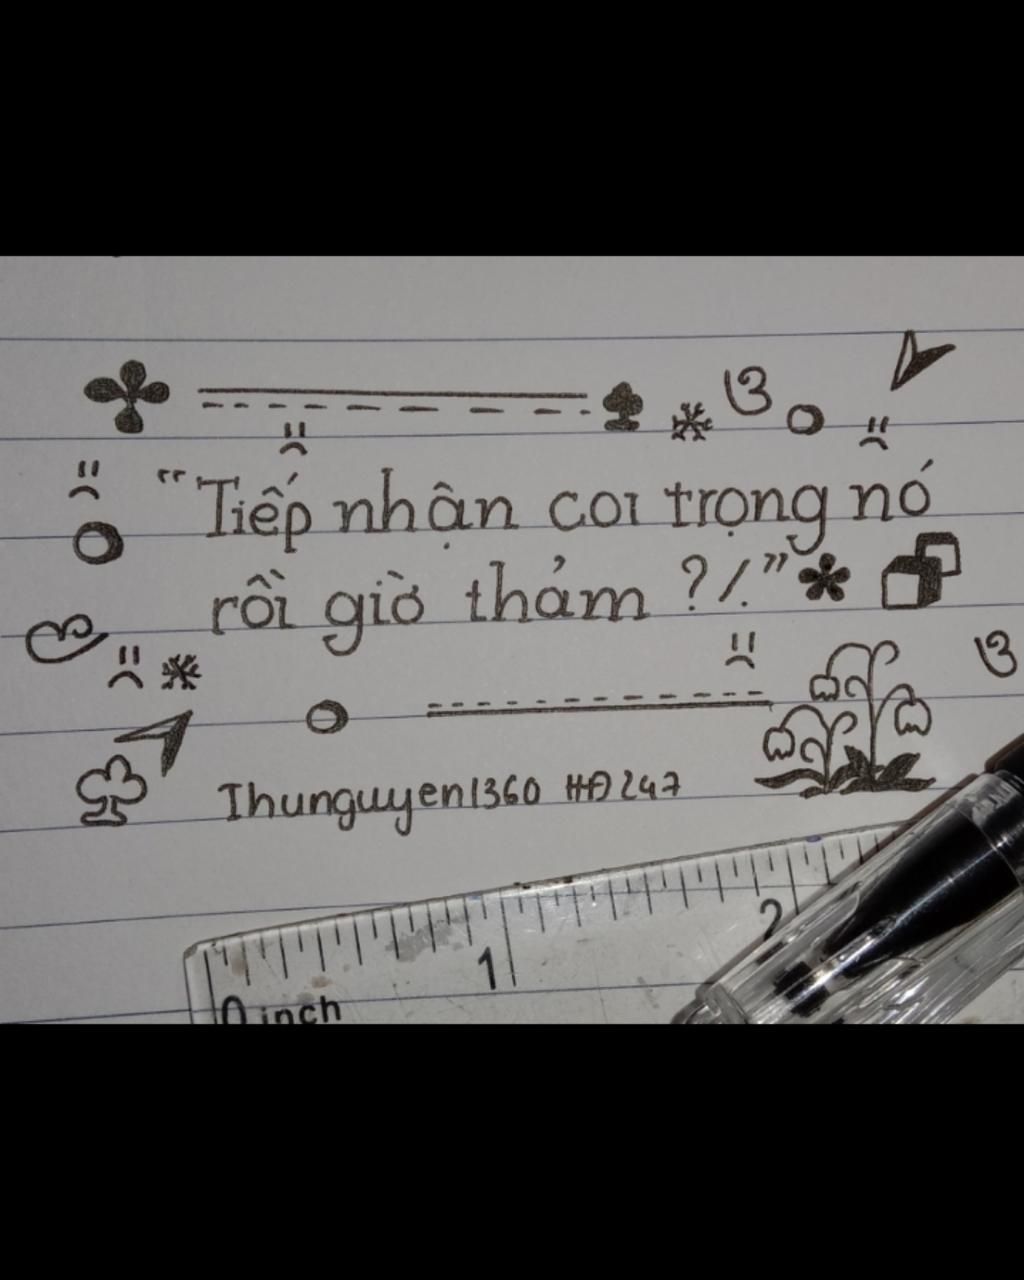 “Tiếp nhận coi trọng nó
rồi giờ thảm ?/.”
Thunguyen1360 HĐ247
1
2
0 inch